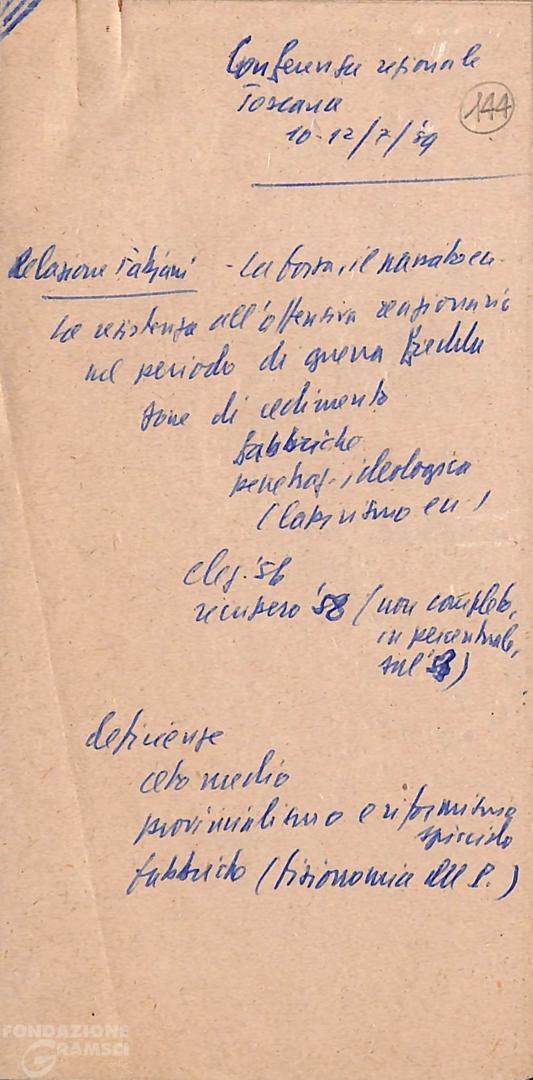 Conferenza regionale
Toscana
144
10-12/7/'59
Relazione Fabiani - La forza, il
La resistenza all'offensiva reazionaria
nel periodo di guerra fredda
zone di cedimento
fabbriche
penetraz. ideologica
(lapirismo ecc.)
elez. '56
recupero '58 (non completo,
in percentuale,
sul '53)
deficienze
ceto medio
provincialismo e riformismo
spicciolo
fabbriche (fisionomia del P.)
FONDAZIONE
GRAMSCI